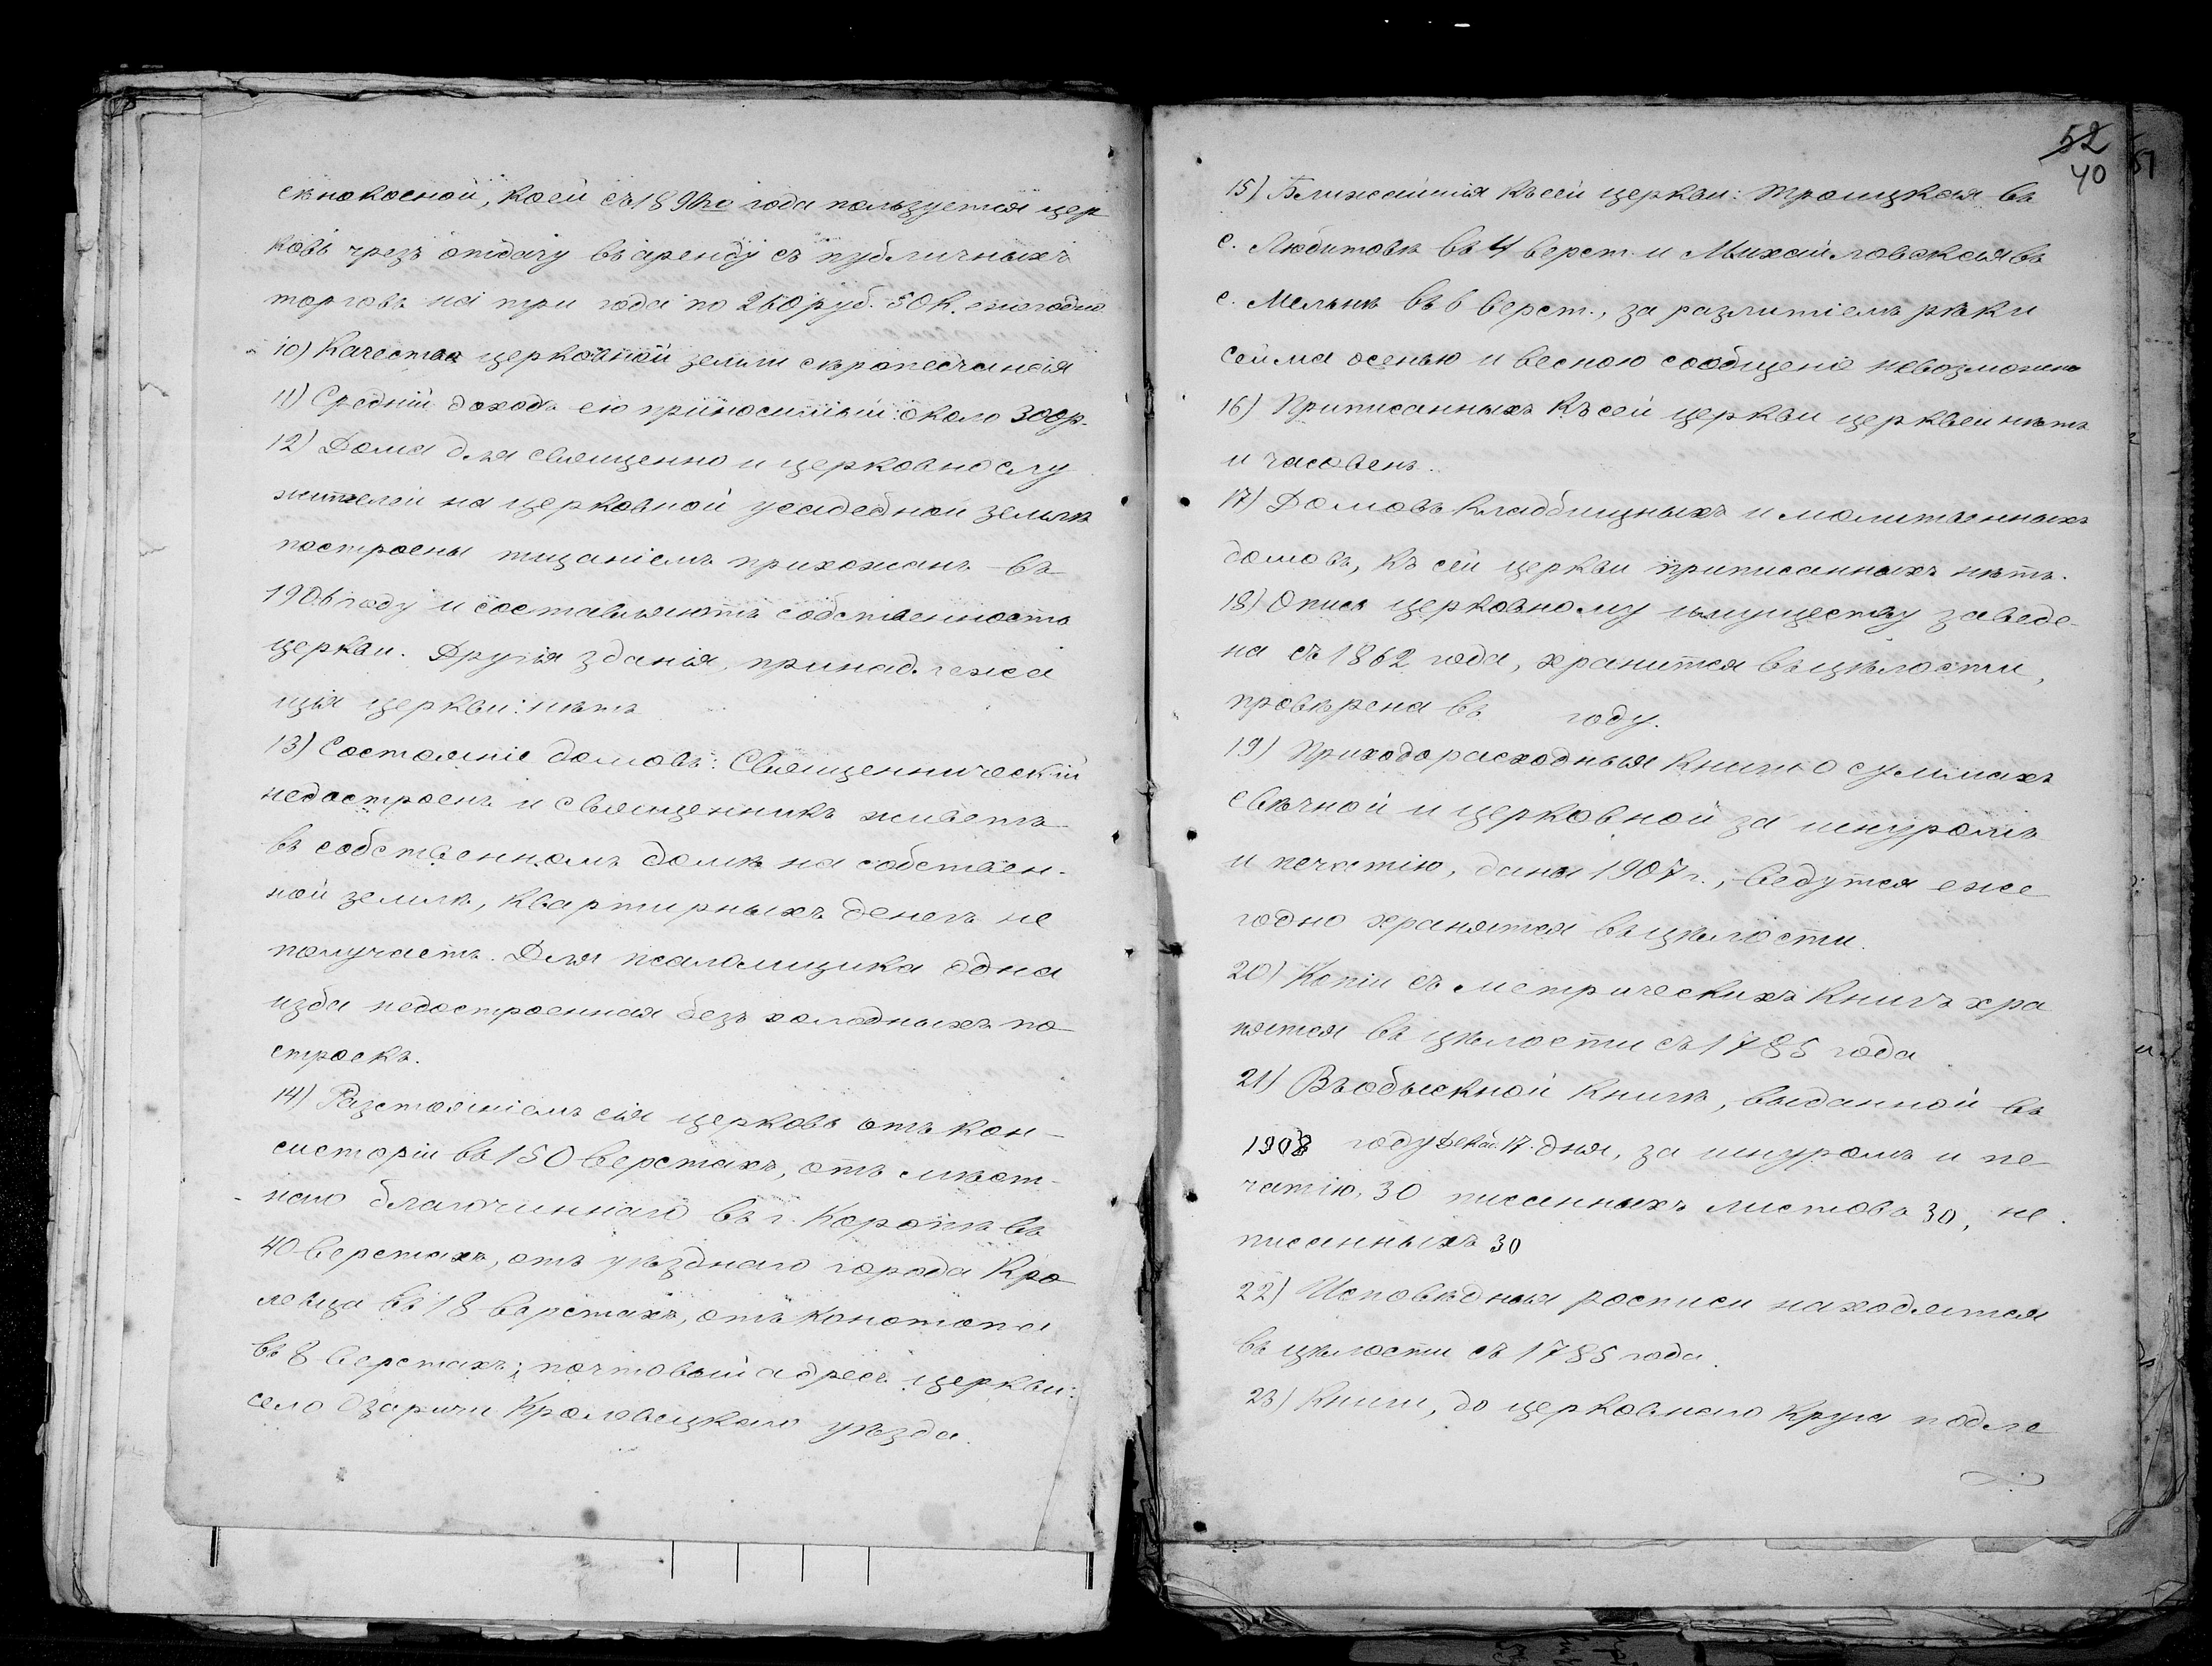 сѣнокосной, коей съ 189 го года пользуется цер
ковь чрезъ отдачу въ аренду съ публичныхъ
торговъ на три года по 260 руб. 50 к. ежегодно
10) Качество церковной земли сѣропесчаная
11) Средній доходъ ею приносимый: около 300 р.
12) Дома для священно и церковнослу
жителей на церковной усадебной землѣ
построены тщаніемъ прихожанъ въ
1906 году и составляютъ собственность
церкви. Другія зданія, принадлежа
щія церкви: нѣтъ
13) Состояніе домовъ: Священническій
недостроенъ и священникъ живетъ
въ собственномъ домѣ на собствен-
ной землѣ, квартирныхъ денегъ не
получаетъ. Для псаломщика одна
изба недостроенная безъ холодныхъ по
строекъ.
14) Разстояніемъ сія церковь отъ кон-
систоріи въ 150 верстахъ, отъ мѣст-
наго благочиннаго въ г. Коропѣ въ
40 верстахъ, отъ уѣзднаго города Кро
левца въ 18 верстахъ, отъ Конотопа
въ 8 верстахъ; почтовый адресъ церкви:
село Озаричи Кролевецкаго уѣзда.
52
40
51
15) Ближайшія къ сей церкви: Троицкая въ
с. Любитовѣ въ 4 верст. и Михайловская въ
с. Мельнѣ въ 6 верст., за разлитіемъ рѣки
Сейма осенью и весною сообщеніе невозможно
16) Приписанныхъ къ сей церкви церквей нѣтъ
и часовенъ.
17) Домовъ кладбищныхъ и молитвенныхъ
домовъ, къ сей церкви приписанныхъ нѣтъ.
18) Опись церковному имуществу заведе-
на съ 1862 года, хранится въ цѣлости,
провѣрена въ году.
19) Приходорасходныя книги о суммахъ
свѣчной и церковной за шнуромъ
и печатію, даны 1907 г., ведутся еже
годно хранятся въ цѣлости.
20) Копіи съ метрическихъ книгъ хра
нятся въ цѣлости съ 1785 года
21) Въ обыскной книгѣ, выданной въ
1908 году Дека. 17 дня, за шнуромъ и пе
чатію, 30 писанныхъ листовъ 30, не
писанныхъ 30
22) Исповѣдныя росписи находятся
въ цѣлости съ 1785 года.
23) Книги, до церковнаго круга подле